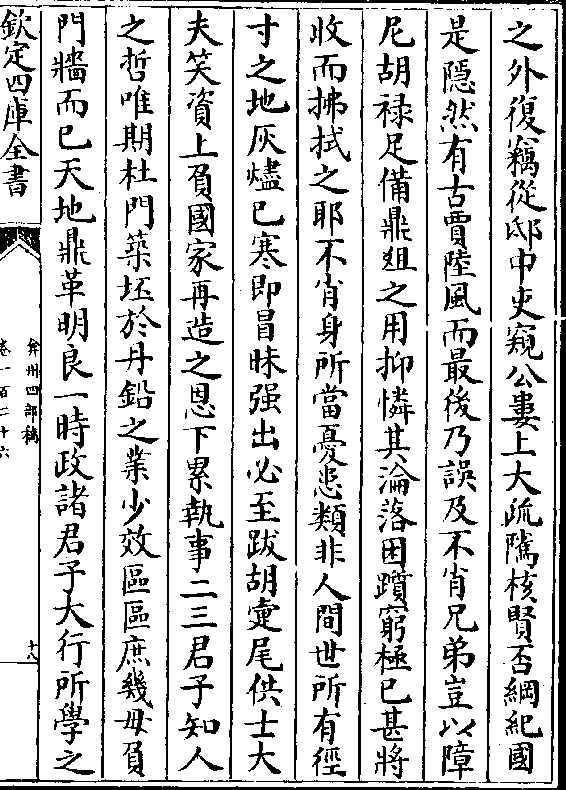 之外復竊從邸中吏窺公婁上大疏隲核賢否綱紀國
是隠然有古賈陸風而最後乃誤及不肖兄弟豈以障
尼胡禄足備鼎俎之用抑憐其淪落困躓窮極已甚將
收而拂拭之耶不肖身所當憂患類非人間世所有徑
寸之地灰燼已寒即冒昧强出必至跋胡疐尾供士大
夫笑資上負國家再造之恩下累執事二三君子知人
之哲唯期杜門築坯於丹鉛之業少效區區庶幾毋負
門牆而已天地鼎革明良一時政諸君子大行所學之
欽定四庫全書
弇州四部稿
卷一百二十六
十八